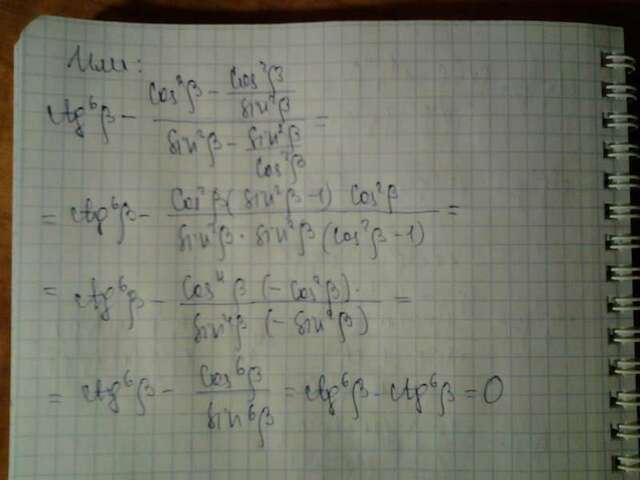 Или:
ctg⁶β - (cos²β - cos²β/sin²β)/(sin²β - sin²β/cos²β) =
= ctg⁶β - (cos²β(sin²β-1) cos²β)/(sin²β · sin²β(cos²β-1)) =
= ctg⁶β - (cos⁴β (-cos²β)·)/(sin⁴β (-sin²β)) =
= ctg⁶β - cos⁶β/sin⁶β = ctg⁶β - ctg⁶β = 0